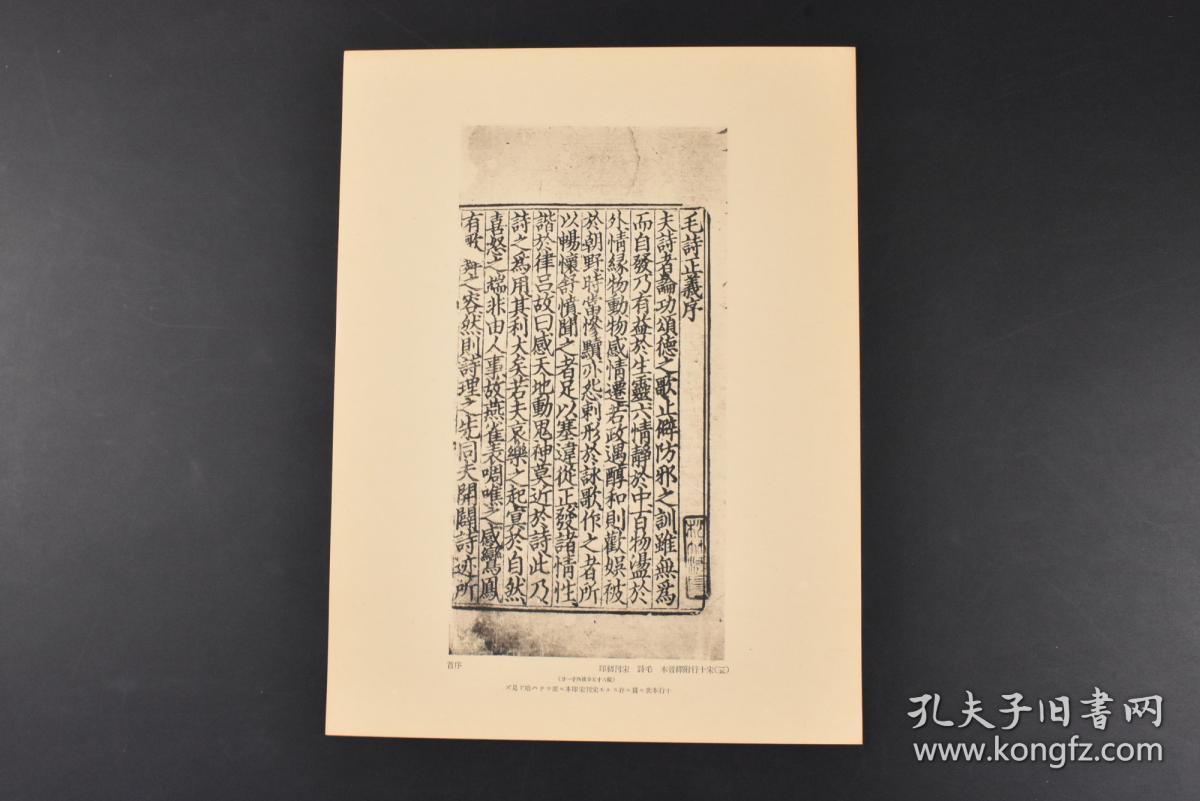 毛詩正義序
夫詩者論功頌德之歌止僻防邪之訓雖無爲
而自發乃有益於生靈六情靜於中百物盪於
外情緣物動物感情遷若政遇醇和則歡娛被
於朝野時當慘黷亦怨刺形於詠歌作之者所
以暢懷舒憤聞之者足以塞違從正發諸情性
諧於律呂故曰感天地動鬼神莫近於詩此乃
詩之爲用其利大矣若夫哀樂之起冥於自然
喜怒之端非由人事故燕雀表啁噍之感鸞鳳
有歌舞之容然則詩理之先同夫開闢詩迹所
(三五)宋十行附釋音本 毛詩 宋刊初印
序首
孔夫子旧书网
www.kongfz.com